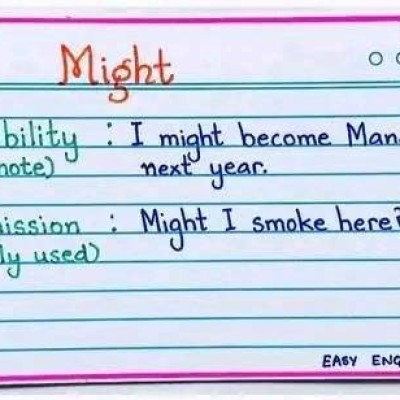 Might
bility : I might become Man
note) next year.
ission : Might I smoke here?
ly used)
EASY ENG